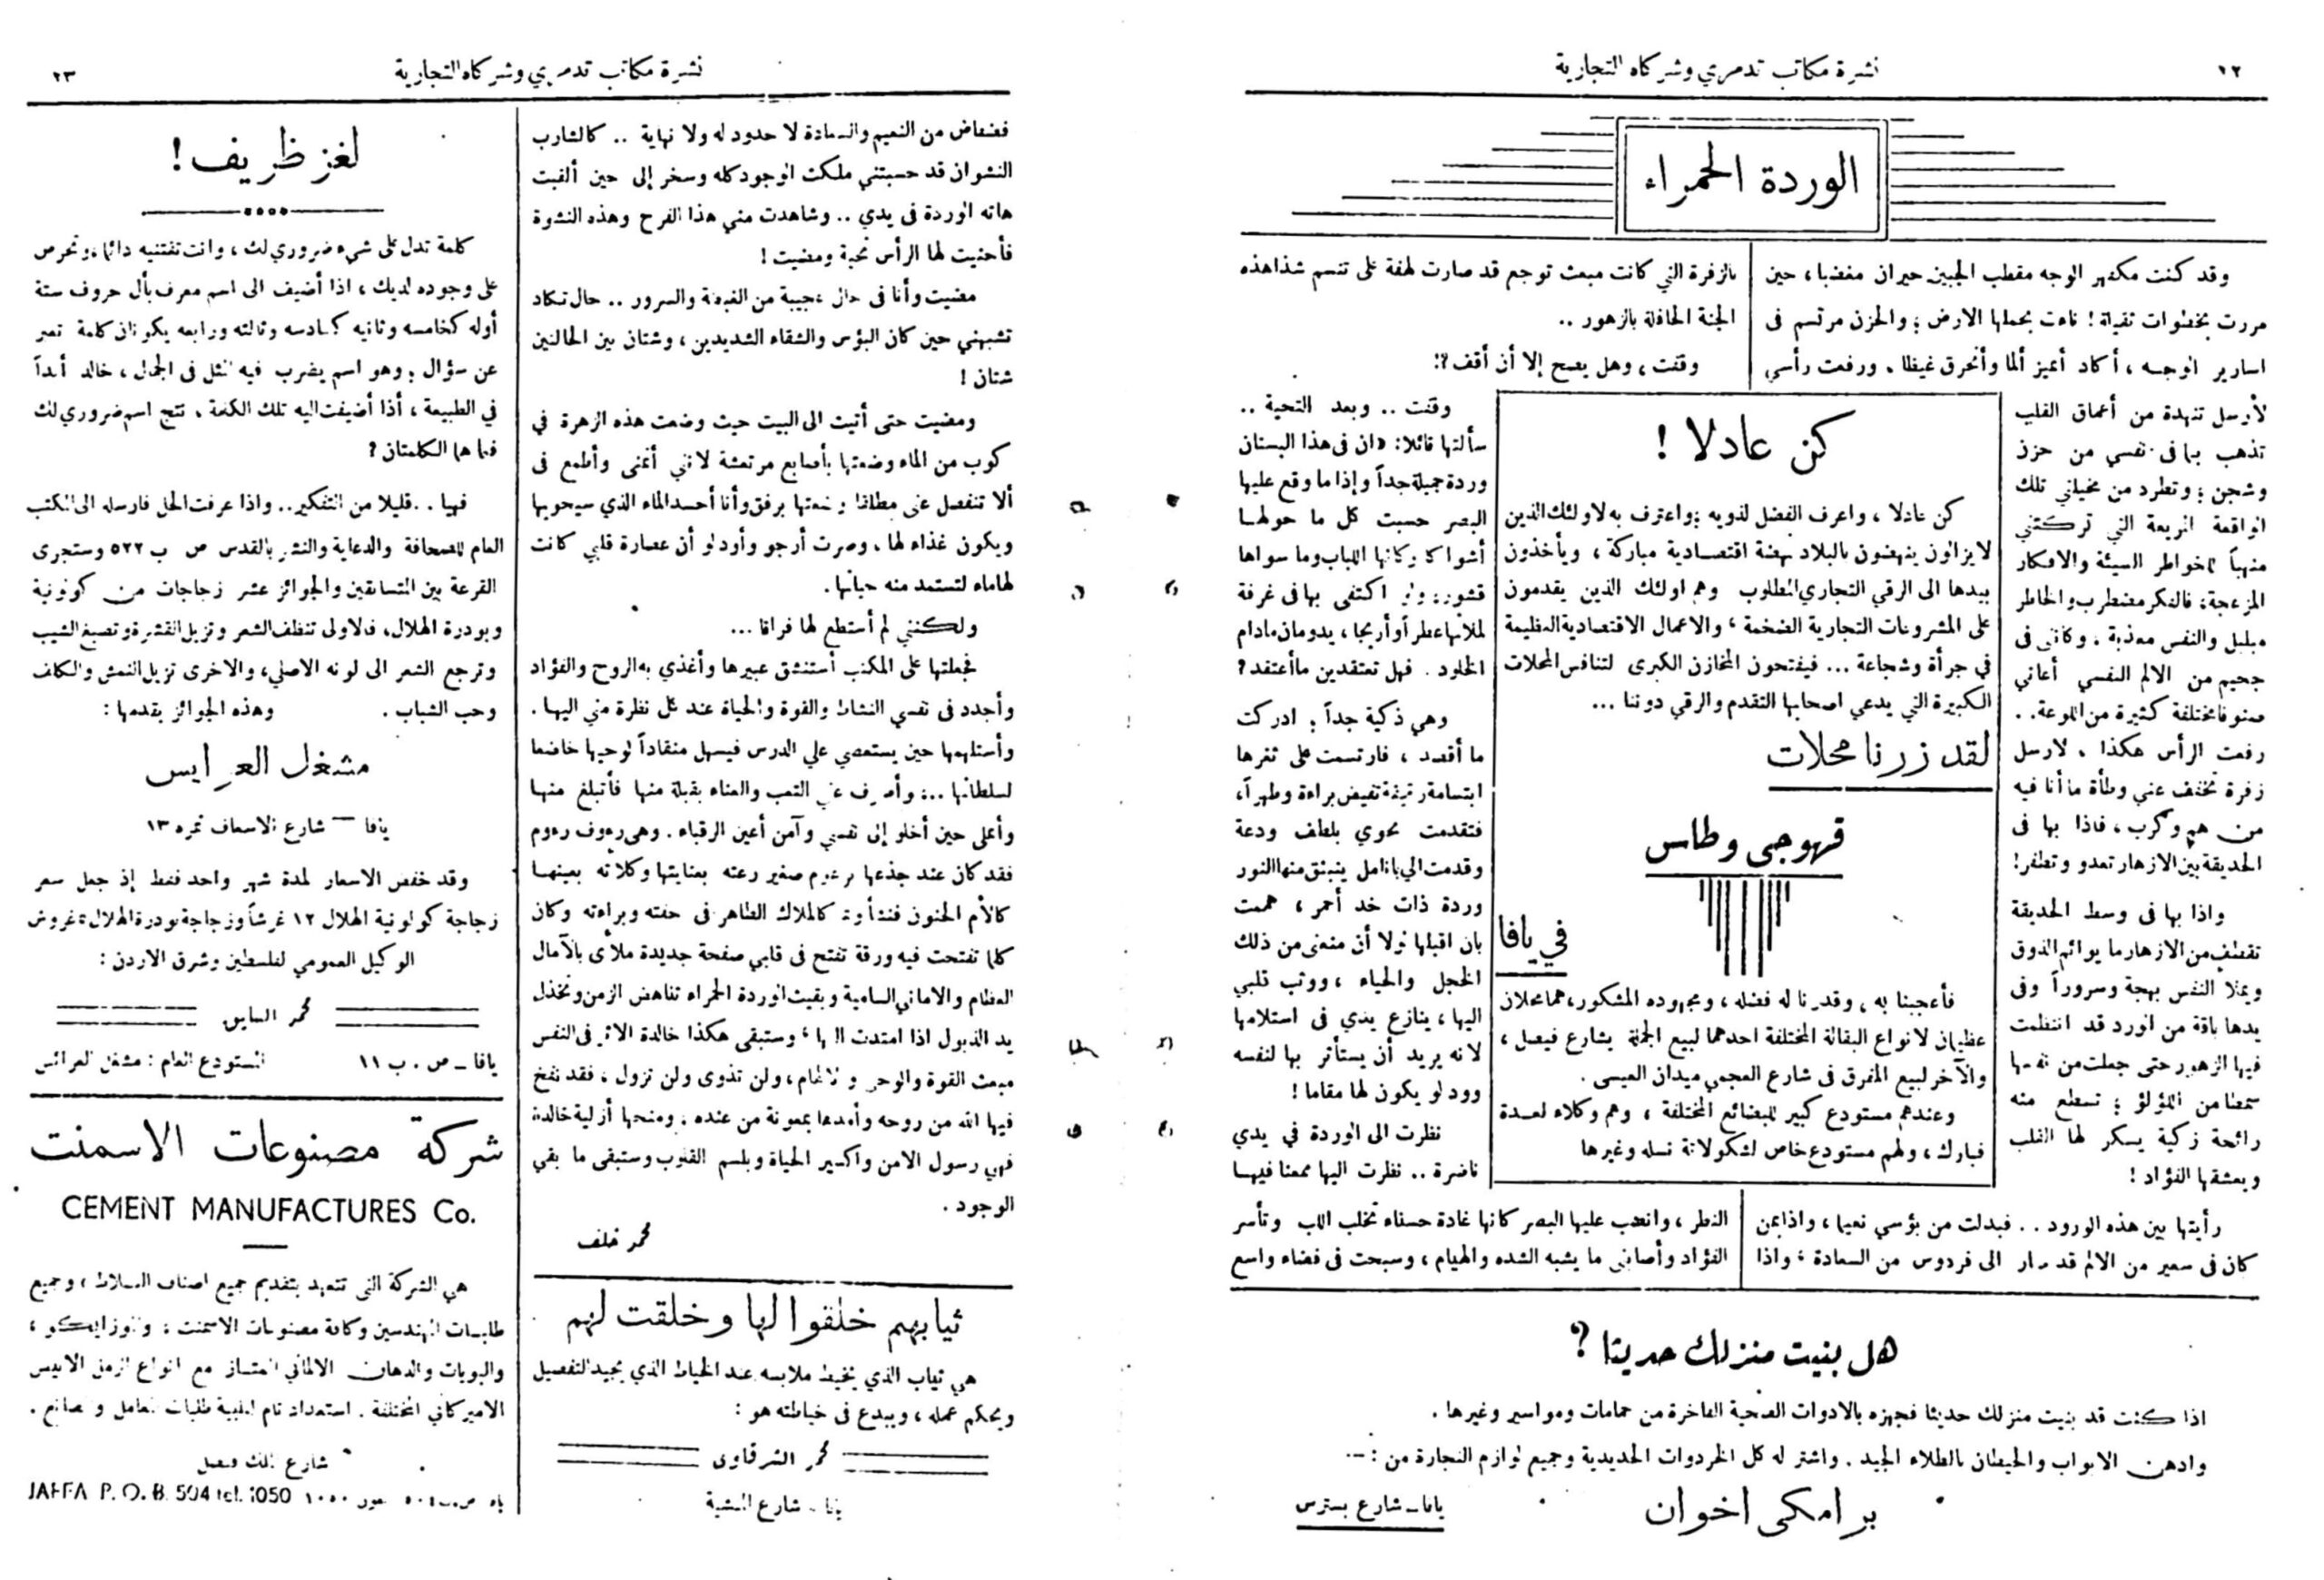 نشرة مكاتب تدمري وشركاه التجارية
١٢
الوردة الحمراء
وقد كنت مكفهر الوجه مقطب الجبين حيران مغضبا، حين
مررت بخطوات ثقيلة! ناءت بحملها الارض؛ والحزن مرتسم فى
اسارير الوجه، أكاد أتميز ألما وأتحرق غيظا. ورفعت رأسي
لأرسل تنهدة من أعماق القلب
تذهب بما فى نفسي من حزن
وشجن؛ وتطرد من مخيلتي تلك
الواقعة المريعة التي تركتني
منهباً للخواطر السيئة والافكار
المزعجة، فالفكر مضطرب والخاطر
مبلبل والنفس معذبة. وكأني فى
جحيم من الالم النفسي أعاني
صنوفا مختلفة كثيرة من اللوعة..
رفعت الرأس هكذا. لارسل
زفرة تخفف عني وطأة ما أنا فيه
من هم وكرب، فاذا بها فى
الحديقة بين الازهار تعدو وتطفر!
واذا بها فى وسط الحديقة
تقطف من الازهار ما يوائم الذوق
ويملا النفس بهجة وسروراً وفى
يدها باقة من الورد قد انتظمت
فيها الزهور حتى جعلت من نفسها
سمطا من اللؤلؤ؛ تسطع منه
رائحة زكية يسكر لها القلب
ويعشقها الفؤاد!
رأيتها بين هذه الورود.. فبدلت من بؤسي نعيما، واذا بمن
كان فى سعير من الالم قد صار الى فردوس من السعادة؛ واذا
بالزفرة التي كانت مبعث توجع قد صارت لهفة على تنسم شذا هذه
الجنة الحافلة بالزهور..
وقفت، وهل يصح إلا أن أقف؟!
وقفت.. وبعد التحية..
سألتها قائلا: «ان فى هذا البستان
وردة جميلة جداً وإذا ما وقع عليها
البصر حسبت كل ما حولها
أشواكا وكأنها اللباب وما سواها
قشور، ولو اكتفى بها فى غرفة
لملأتها عطراً وأريجا، يدومان مادام
الخلود. فهل تعتقدين ما أعتقد؟
وهي ذكية جداً؛ ادركت
ما أقصد، فارتسمت على ثغرها
ابتسامة رقيقة تفيض براءة وطهراً،
فتقدمت نحوي بلطف ودعة
وقدمت الي بانامل ينبثق منها النور
وردة ذات خد أحمر، هممت
بان اقبلها لولا أن منعني من ذلك
الخجل والحياء، ووثب قلبي
اليها، ينازع يدي فى استلامها
لانه يريد أن يستأثر بها لنفسه
وود لو يكون لها مقاما!
نظرت الى الوردة في يدي
ناضرة.. نظرت اليها ممعنا فيها
النظر، وانصب عليها البصر كأنها غادة حسناء تخلب اللب وتأسر
الفؤاد وأصابني ما يشبه الشده والهيام، وسبحت فى فضاء واسع
كن عادلا!
كن عادلا، واعرف الفضل لذويه؛ واعترف به لاولئك الذين
لا يزالون ينهضون بالبلاد نهضة اقتصادية مباركة، ويأخذون
بيدها الى الرقي التجاري المطلوب وهم اولئك الذين يقدمون
على المشروعات التجارية الضخمة، والاعمال الاقتصادية العظيمة
في جرأة وشجاعة... فيفتحون المخازن الكبرى لتنافس المحلات
الكبيرة التي يدعي اصحابها التقدم والرقي دوننا...
لقد زرنا محلات
قهوجي وطاس
في يافا
فأعجبنا به، وقدرنا له فضله، ومجهوده المشكور، هما محلان
عظيمان لانواع البقالة المختلفة احدهما لبيع الجملة بشارع فيصل،
والآخر لبيع المفرق فى شارع العجمي ميدان العيسى.
وعندهم مستودع كبير للبضائع المختلفة، وهم وكلاء لعدة
فبارك، ولهم مستودع خاص لشكولاتة نسله وغيرها
هل بنيت منزلك حديثا؟
اذا كنت قد بنيت منزلك حديثا فجهزه بالادوات الصحية الفاخرة من حمامات ومواسير وغيرها.
وادهن الابواب والحيطان بالطلاء الجيد. واشتر له كل الخردوات الحديدية وجميع لوازم النجارة من:—
برامكي اخوان
يافا ـ شارع بسترس
نشرة مكاتب تدمري وشركاه التجارية
٢٣
فضفاض من النعيم والسعادة لا حدود له ولا نهاية.. كالشارب
النشوان قد حسبتني ملكت الوجود كله وسخر إلى حين ألفيت
هاته الوردة فى يدي.. وشاهدت مني هذا الفرح وهذه النشوة
فأحنيت لها الرأس تحية ومضيت!
مضيت وأنا فى حال عجيبة من الغبطة والسرور.. حال تكاد
تشبهني حين كان البؤس والشقاء الشديدين، وشتان بين الحالتين
شتان!
ومضيت حتى أتيت الى البيت حيث وضعت هذه الزهرة في
كوب من الماء وضعتها بأصابع مرتعشة لانني أتمنى وأطمع فى
ألا تنفصل عني مطلقا وضعتها برفق وأنا أحسد الماء الذي سيحويها
ويكون غذاء لها. وصرت أرجو وأود لو أن عصارة قلبي كانت
لها ماء لتستمد منه حياتها.
ولكنني لم أستطع لها فراقا...
فجعلتها على المكتب أستنشق عبيرها وأغذي به الروح والفؤاد
وأجدد فى نفسي النشاط والقوة والحياة عند كل نظرة مني اليها.
وأستلهمها حين يستعصي علي الدرس فيسهل منقاداً لوحيها خاضعا
لسلطانها... وأصرف عني التعب والعناء بقبلة منها فأتبلغ منها
وأعلى حين أخلو إلى نفسي وآمن أعين الرقباء. وهى رءوف رءوم
فقد كان عند جذعها برعوم صغير رعته بعنايتها وكلأته بعينها
كالأم الحنون فنشأ وهو كالملاك الطاهر فى خفته وبراءته وكان
كلما تفتحت فيه ورقة تفتح فى قلبي صفحة جديدة ملأى بالآمال
العظام والاماني السامية وبقيت الوردة الحمراء تناهض الزمن وتخذل
يد الذبول اذا امتدت اليها، وستبقى هكذا خالدة الاثر فى النفس
مبعث القوة والوحي والالهام، ولن تذوى ولن تزول. فقد نفخ
فيها الله من روحه وأمدها بمعونة من عنده. ومنحها أزلية خالدة
فهي رسول الامن واكسير الحياة وبلسم القلوب وستبقى ما بقي
الوجود.
محمد خلف
ثيابهم خلقوا لها وخلقت لهم
هي ثياب الذي يخيط ملابسه عند الخياط الذي يجيد التفصيل
ويحكم عمله، ويبدع فى خياطته هو:
محمد الشرقاوى
يافا - شارع المنشية
لغز ظريف!
كلمة تدل على شيء ضروري لك، وانت تقتنيه دائما، وتحرص
على وجوده لديك، اذا أضيف الى اسم معرف بأل حروف ستة
أوله كخامسه وثانيه كسادسه وثالثه ورابعه يكونان كلمة تعبر
عن سؤال؛ وهو اسم يضرب فيه المثل فى الجمال، خالد أبداً
في الطبيعة، أذا أضيفت اليه تلك الكلمة. نتج اسم ضروري لك
فما هما الكلمتان؟
فهيا.. قليلا من التفكير.. واذا عرفت الحل فارسله الى المكتب
العام للصحافة والدعاية والنشر بالقدس ص ب ٥٢٢ وستجرى
القرعة بين المتسابقين والجوائز عشر زجاجات من كولونية
وبودرة الهلال، فالاولى تنظف الشعر وتزيل القشرة وتصبغ الشيب
وترجع الشعر الى لونه الاصلي، والاخرى تزيل النمش والكلف
وحب الشباب. وهذه الجوائز يقدمها:
مشغل العرايس
يافا — شارع الاسعاف نمره ١٣
وقد خفض الاسعار لمدة شهر واحد فقط إذ جعل سعر
زجاجة كولونية الهلال ١٢ غرشاً وزجاجة بودرة الهلال غروش
الوكيل العمومي لفلسطين وشرق الاردن:
محمد السايق
يافا ـ ص. ب ١١ المستودع العام: مشغل العرائس
شركة مصنوعات الاسمنت
CEMENT MANUFACTURES Co.
هي الشركة التى تتعهد بتقديم جميع اصناف البلاط، وجميع
طلبات المهندسين وكافة مصنوعات الاسمنت، والموزاييكو،
والبويات والدهان الالماني الممتاز مع انواع الرمل الابيض
الاميركاني المختلفة. استعداد تام لتلبية طلبات المعامل والمصانع.
شارع الملك فيصل
JAFFA P. O. B. 504 tel. 1050